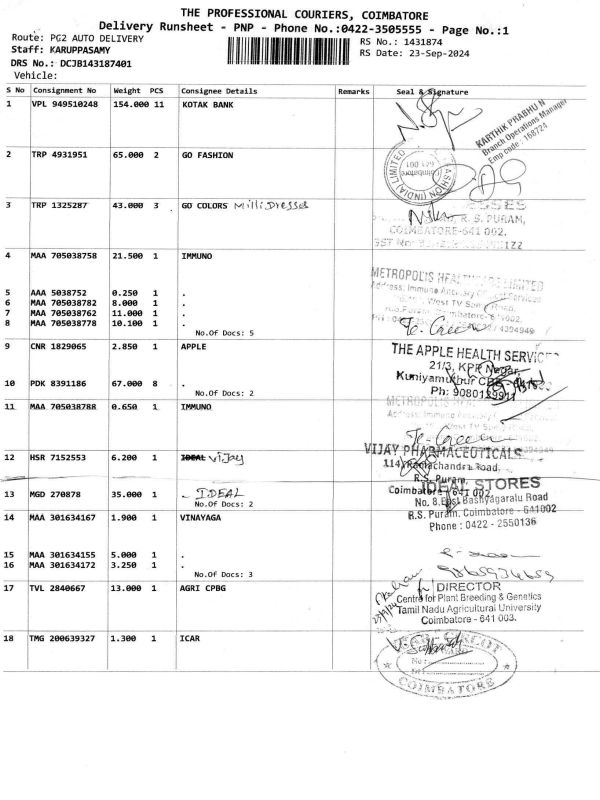 THE PROFESSIONAL COURIERS, COIMBATORE
Delivery Runsheet - PNP - Phone No.:0422-3505555 - Page No.:1
Route: PG2 AUTO DELIVERY
RS No.: 1431874
Staff: KARUPPASAMY
RS Date: 23-Sep-2024
DRS No.: DCJB143187401
Vehicle:
S No Consignment No Weight PCS Consignee Details Remarks Seal & Signature
1 VPL 949510248 154.000 11 KOTAK BANK
KARTHIK PRABHU N
Branch Operations Manager
Emp code : 168724
2 TRP 4931951 65.000 2 GO FASHION
FASHION (INDIA) LIMITED
3 TRP 1325287 43.000 3 GO COLORS Milli Dresses
R. S. PURAM,
COIMBATORE-641 002.
4 MAA 705038758 21.500 1 IMMUNO
METROPOLIS HEALTHCARE LIMITED
5 AAA 5038752 0.250 1 .
6 MAA 705038782 8.000 1 .
7 MAA 705038762 11.000 1 .
8 MAA 705038778 10.100 1 .
No.Of Docs: 5
9 CNR 1829065 2.850 1 APPLE
THE APPLE HEALTH SERVICES
21/3, KPR Nagar,
Kuniyamuthur
Ph: 9080129911
10 PDK 8391186 67.000 8 .
No.Of Docs: 2
11 MAA 705038788 0.650 1 IMMUNO
METROPOLIS
12 HSR 7152553 6.200 1 IDEAL Vijay
VIJAY PHARMACEUTICALS
114, Ramachandra Road,
R.S. Puram,
Coimbatore - 641 002
13 MGD 270878 35.000 1 . IDEAL
No.Of Docs: 2
IDEAL STORES
No. 8, East Bashyagaralu Road
R.S. Puram. Coimbatore - 641002
Phone : 0422 - 2550136
14 MAA 301634167 1.900 1 VINAYAGA
15 MAA 301634155 5.000 1 .
16 MAA 301634172 3.250 1 .
No.Of Docs: 3
17 TVL 2840667 13.000 1 AGRI CPBG
DIRECTOR
Centre for Plant Breeding & Genetics
Tamil Nadu Agricultural University
Coimbatore - 641 003.
18 TMG 200639327 1.300 1 ICAR
COIMBATORE